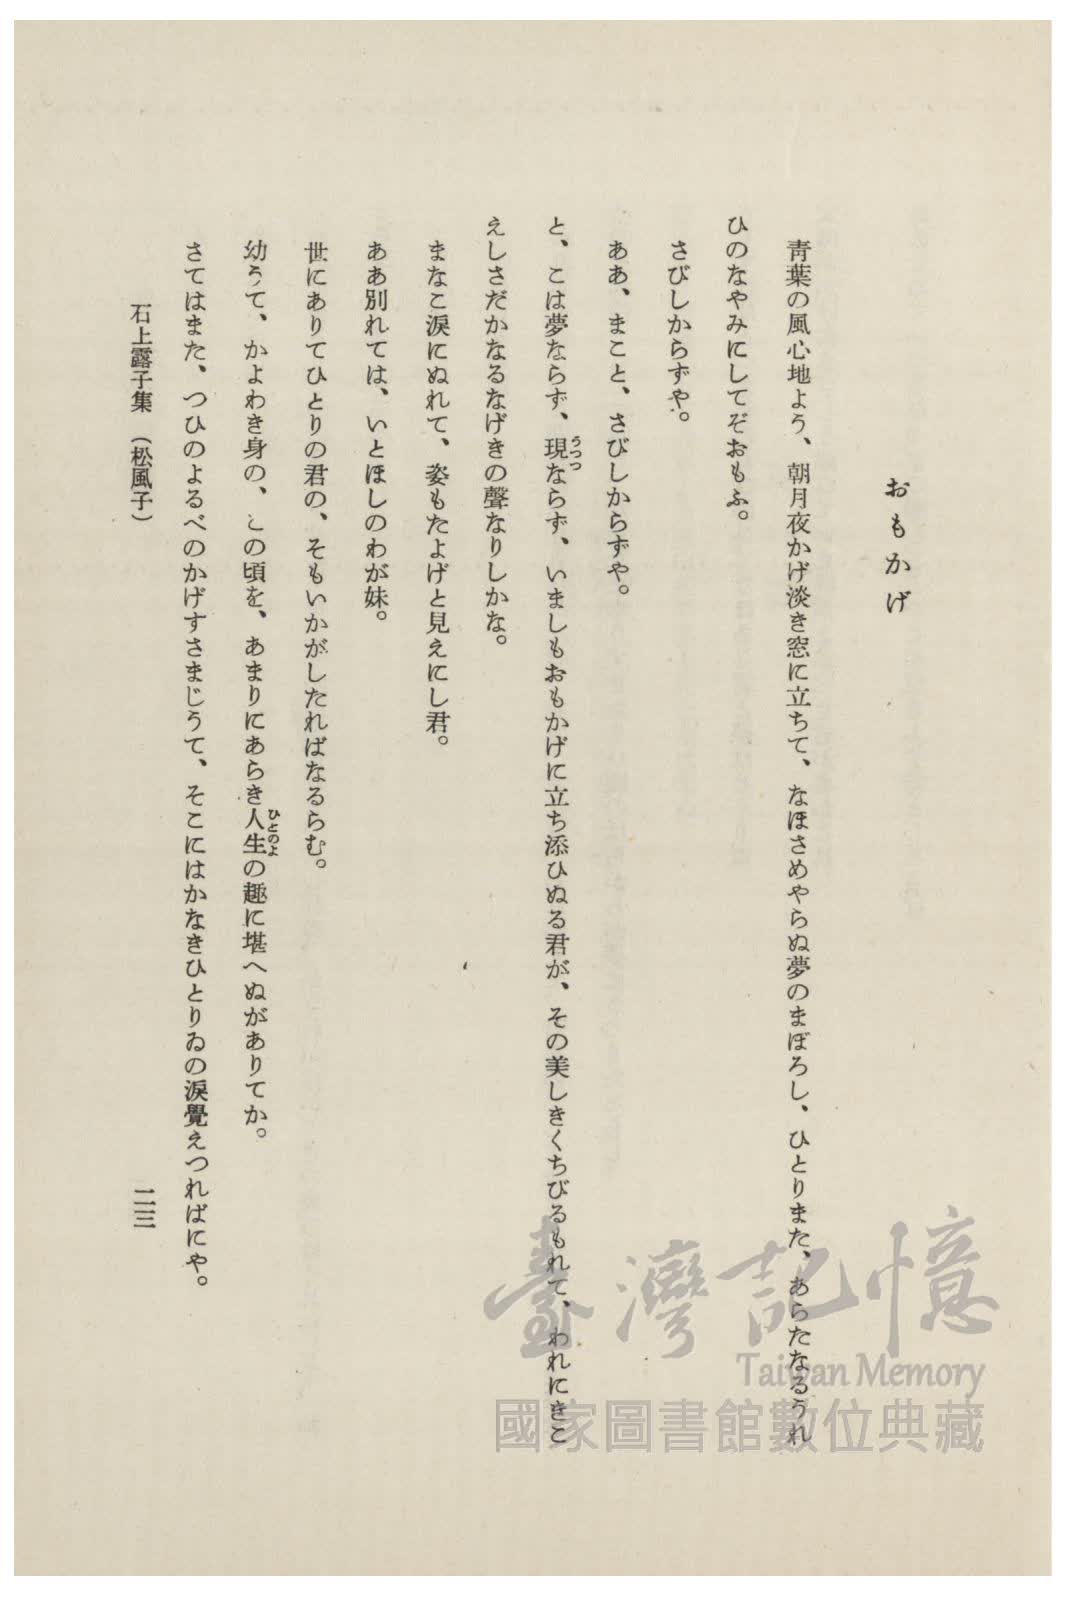 おもかげ
青葉の風心地よう、朝月夜かげ淡き窓に立ちて、なほさめやらぬ夢のまぼろし、ひとりまた、あらたなるうれ
ひのなやみにしてぞおもふ。
さびしからずや。
ああ、まこと、さびしからずや。
と、こは夢ならず、現ならず、いましもおもかげに立ち添ひぬる君が、その美しきくちびるもれて、われにきこ
うつつ
えしさだかなるなげきの聲なりしかな。
まなこ涙にぬれて、姿もたよげと見えにし君。
ああ別れては、いとほしのわが妹。
世にありてひとりの君の、そもいかがしたればなるらむ。
幼うて、かよわき身の、この頃を、あまりにあらき人生の趣に堪へぬがありてか。
ひとのよ
さてはまた、つひのよるべのかげすさまじうて、そこにはかなきひとりゐの涙覺えつればにや。
石上露子集 (松風子)
二三
臺灣記憶
Taiwan Memory
國家圖書館數位典藏